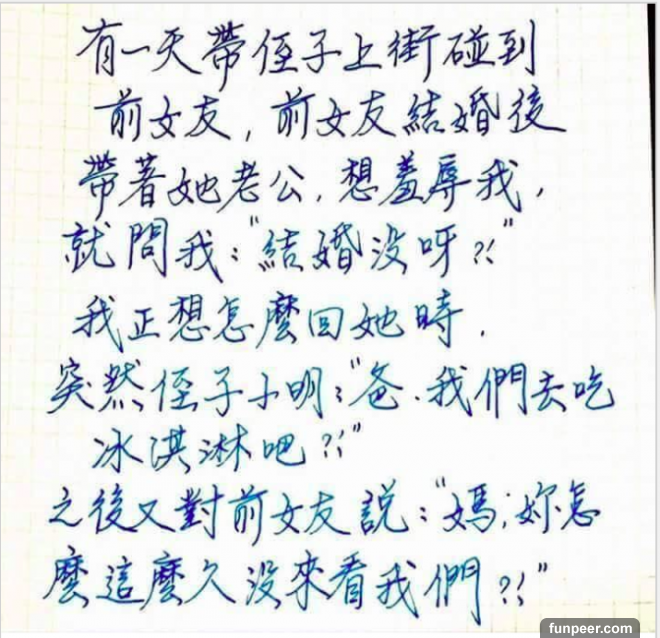 有一天帶侄子上街碰到
前女友,前女友結婚後
帶著她老公,想羞辱我,
就問我:"結婚沒呀?!"
我正想怎麼回她時,
突然侄子小明:"爸,我們去吃
冰淇淋吧?!"
之後又對前女友說:"媽,妳怎
麼這麼久沒來看我們?!"
funpeer.com